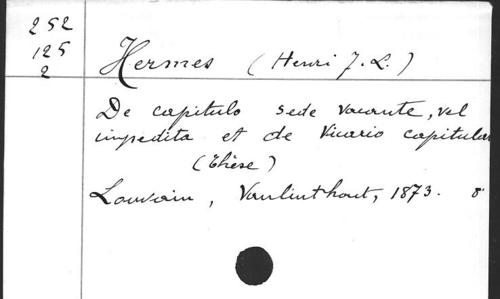 252
125
2
Hermes (Henri J. L.)
De capitulo sede vacante, vel
impedita et de Vicario capitular
(Thèse)
Louvain, Vanlinthout, 1873. 8°